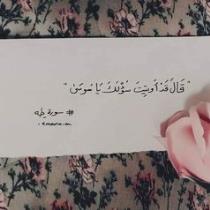 "قَالَ قَدْ أُوتِيتَ سُؤْلَكَ يَا مُوسَىٰ"
# سورة طه